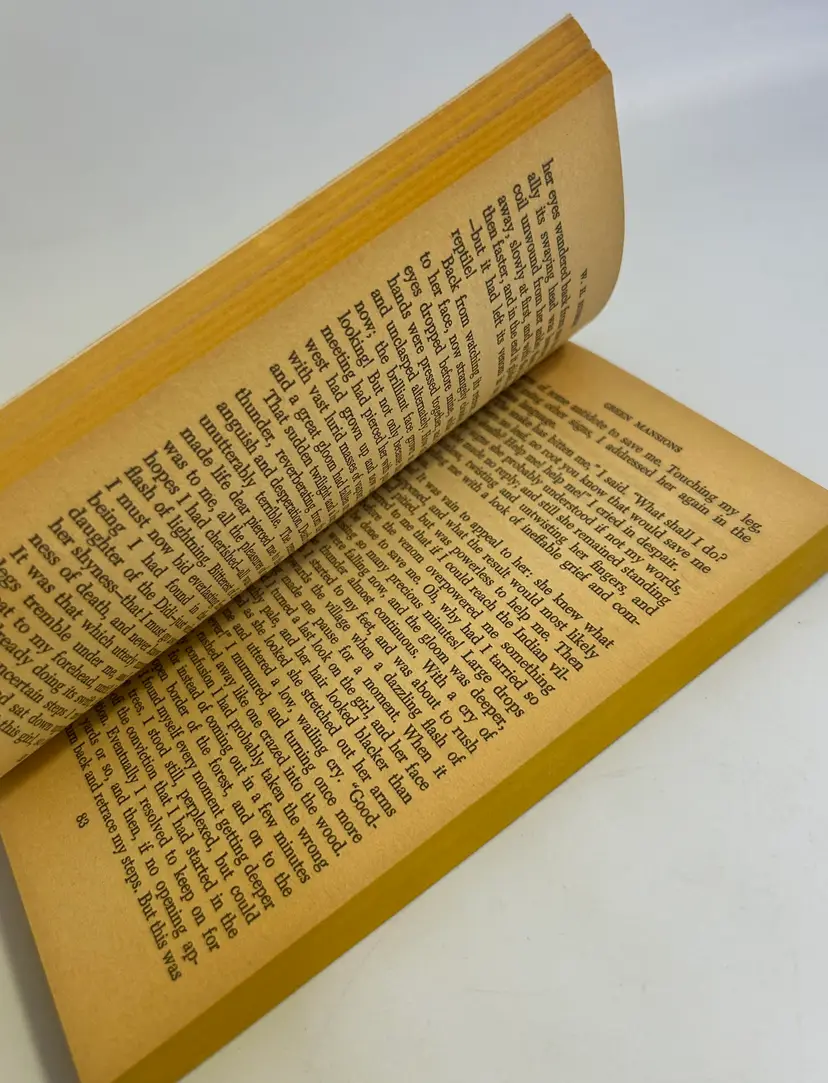 W. H.
her eyes wandered back
ally its swaying head was
coil unwound from her
away, slowly at first, and
then faster, and in the end
—but it had left its venom
reptile!
Back from watching its
to her face, now strangely
eyes dropped before mine
hands were pressed together
and unclasped alternately
now; the brilliant face
looking! But not only
meeting had pierced her
west had grown up and
with vast lurid masses of
and a great gloom had
That sudden twilight and
thunder, reverberating
anguish and desperation
unutterably terrible. The
made life dear pierced me
was to me, all the pleasure
hopes I had cherished
flash of lightning.
I must now bid everlasting
being I had found in
daughter of the
her shyness—that I must
ness of death, and never
It was that which utterly
legs tremble under me
at to my forehead
ready doing its
ncertain steps
d sat down
this girl
GREEN MANSIONS
of some antidote to save me. Touching my leg,
other signs, I addressed her again in the
language.
snake has bitten me," I said. "What shall I do?
no root you know that would save me
Help me! help me!" I cried in despair.
she probably understood if not my words,
made no reply, and still she remained standing
twisting and untwisting her fingers, and
me with a look of ineffable grief and com-
It was vain to appeal to her: she knew what
and what the result would most likely
pitied, but was powerless to help me. Then
to me that if I could reach the Indian vil-
the venom overpowered me something
done to save me. Oh, why had I tarried so
so many precious minutes! Large drops
falling now, and the gloom was deeper,
thunder almost continuous. With a cry of
started to my feet, and was about to rush
the village, when a dazzling flash of
made me pause for a moment. When it
turned a last look on the girl, and her face
pale, and her hair looked blacker than
as she looked she stretched out her arms
and uttered a low, wailing cry. "Good-
I murmured, and turning once more
rushed away like one crazed into the wood.
confusion I had probably taken the wrong
instead of coming out in a few minutes
open border of the forest, and on to the
found myself every moment getting deeper
trees. I stood still, perplexed, but could
the conviction that I had started in the
Eventually I resolved to keep on for
or so, and then, if no opening ap-
back and retrace my steps. But this was
83